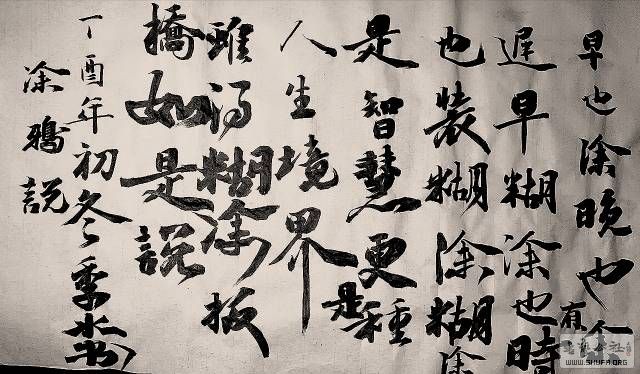 早也涂晚也
遲早糊涂也有時
也裝糊涂糊涂
是智慧更是種
人生境界
難得糊涂板
橋如是説
丁酉年初冬季
涂鴉説
WWW.SHUFA.ORG